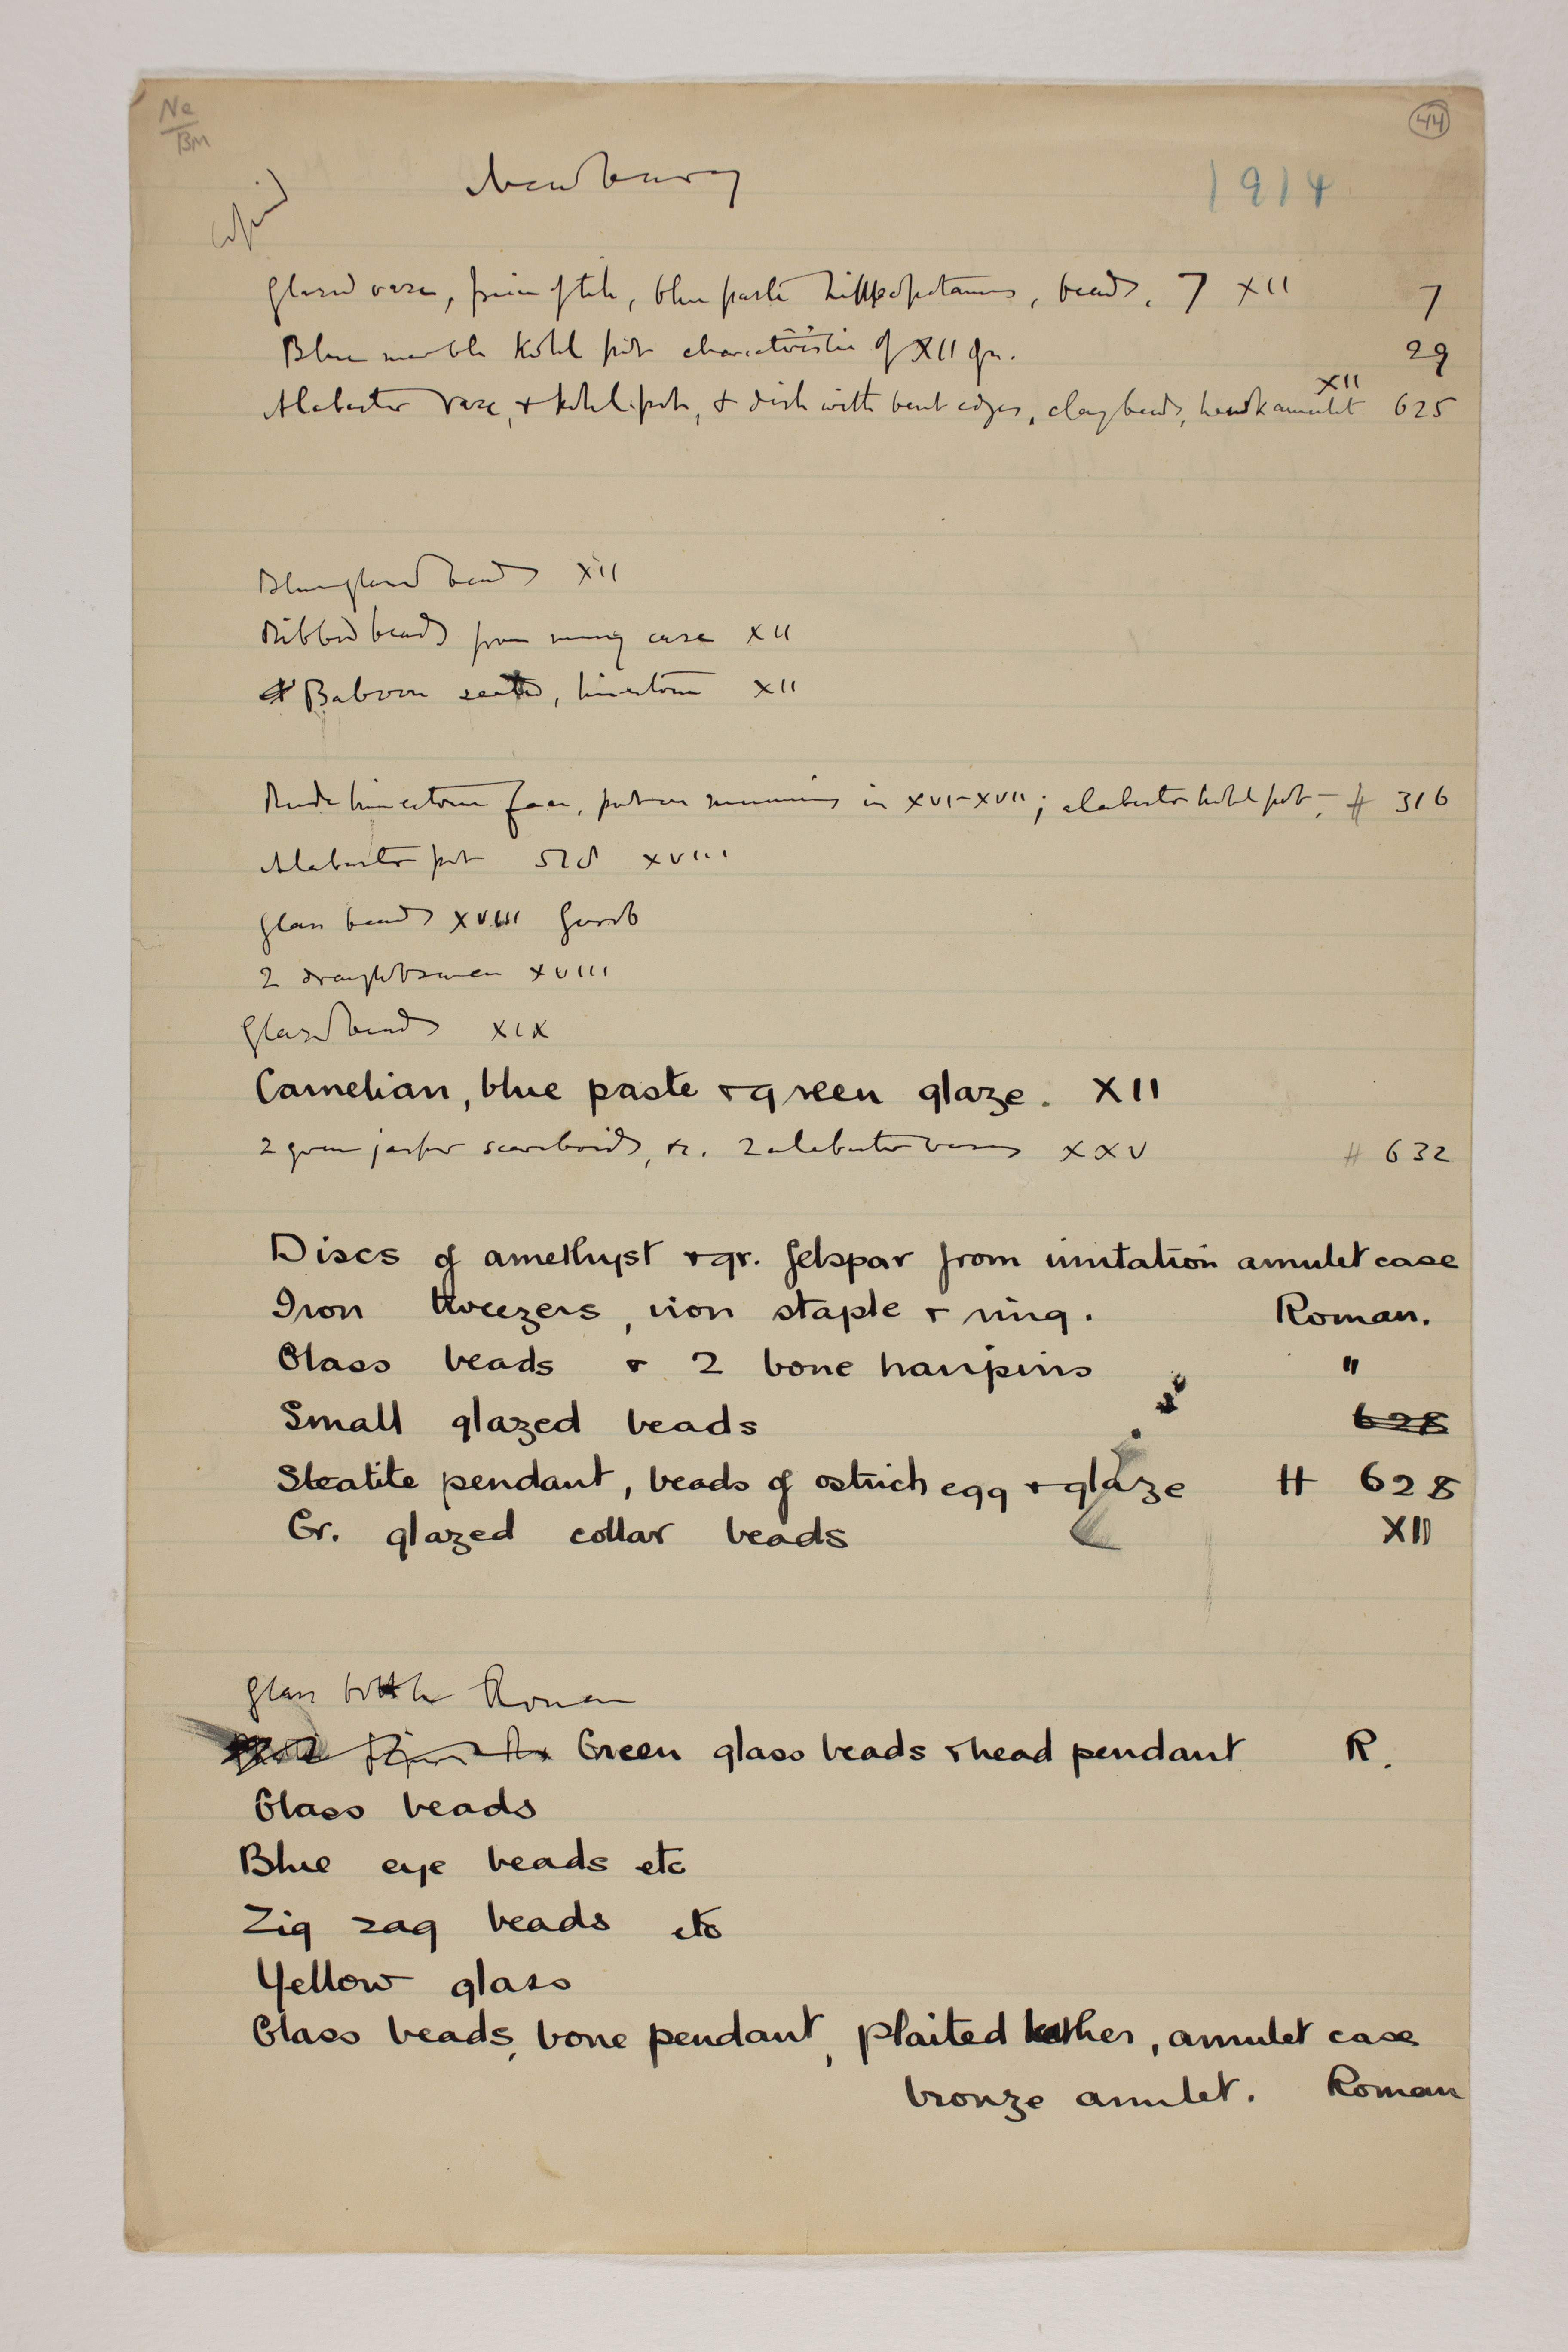 Ne
BM
44
Newbury
1914
copied
Glazed vase, piece of tile, blue paste hippopotamus, beads, 7 XII 7
Blue marble Kohl pot characteristic of XII dyn. 29
Alabaster vase, + kohl pot, + dish with bent edges, clay beads, hawk amulet XII 625
Blue glazed beads XII
Ribbed beads from mummy case XII
Baboon seated, limestone XII
Rude limestone face, put on mummies in XVI-XVII; alabaster kohl pot, H 316
Alabaster pot XVIII
Glass beads XVIII Gurob
2 draughtsmen XVIII
Glazed beads XIX
Carnelian, blue paste + green glaze. XII
2 green jasper scaraboids, &c. 2 alabaster vases XXV H 632
Discs of amethyst + gr. felspar from imitation amulet case
Iron tweezers, iron staple + ring. Roman.
Glass beads + 2 bone hairpins "
Small glazed beads 628
Steatite pendant, beads of ostrich egg + glaze H 628
Gr. glazed collar beads XII
Glass bottle Roman
Green glass beads + head pendant R.
Glass beads
Blue eye beads etc
Zig zag beads etc
Yellow glass
Glass beads, bone pendant, plaited leather, amulet case
bronze amulet. Roman